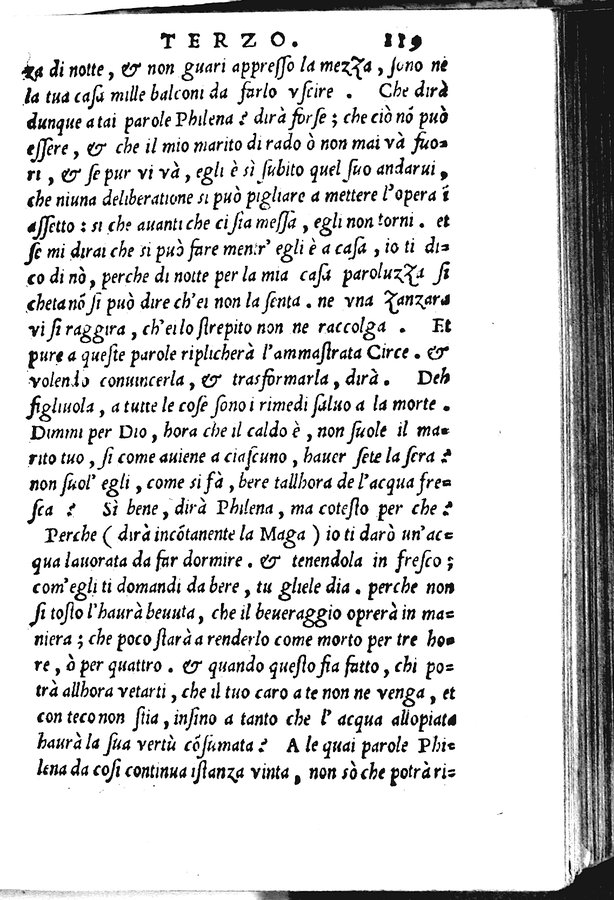 TERZO. 119
za di notte, & non guari appreſſo la mezza, ſono ne
la tua caſa mille balconi da farlo vſcire . Che dirà
dunque a tai parole Philena? dirà forſe; che ciò nõ può
eſſere, & che il mio marito di rado ò non mai và fuo=
ri, & ſe pur vi và, egli è sì ſubito quel ſuo andarui,
che niuna deliberatione si può pigliare a mettere l'opera ĩ
aſſetto: si che auanti che ci ſia meſſa, egli non torni. et
ſe mi dirai che si può fare mentr' egli è a caſa, io ti di=
co di nò, perche di notte per la mia caſa paroluzza ſi
cheta nõ ſi può dire ch'ei non la ſenta. ne vna zanzara
vi ſi raggira, ch'ei lo ſtrepito non ne raccolga . Et
pure a queſte parole riplicherà l'ammaſtrata Circe. &
volendo conuincerla, & trasformarla, dirà. Deh
figliuola, a tutte le coſe ſono i rimedi ſaluo a la morte.
Dimmi per Dio, hora che il caldo è, non ſuole il ma=
rito tuo, ſi come auiene a ciaſcuno, hauer ſete la ſera?
non ſuol' egli, come si fà, bere tallhora de l'acqua fre=
ſca? Sì bene, dirà Philena, ma coteſto per che?
Perche ( dirà incõtanente la Maga ) io ti darò un'ac=
qua lauorata da far dormire. & tenendola in freſco;
com'egli ti domandi da bere, tu gliele dia. perche non
ſi toſto l'haurà beuuta, che il beueraggio oprerà in ma=
niera; che poco ſtarà a renderlo come morto per tre ho=
re, ò per quattro. & quando queſto fia fatto, chi po=
trà allhora vetarti, che il tuo caro a te non ne venga, et
con teco non ſtia, inſino a tanto che l' acqua allopiata
haurà la ſua vertù cõſumata? A le quai parole Phi=
lena da coſi continua iſtanza vinta, non sò che potrà ri=